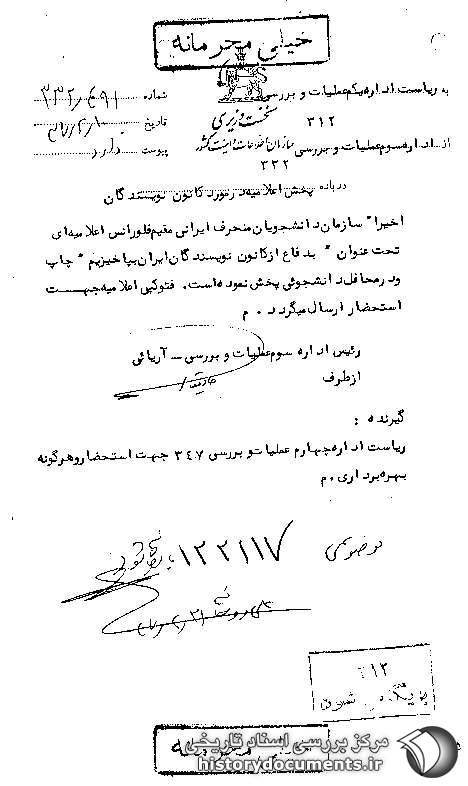 خیلی محرمانه
به ریاست اداره یکم عملیات و بررسی
۳۱۲
شماره ۳۳۲/۴۹۱
نخست وزیری
تاریخ
از اداره سوم عملیات و بررسی
سازمان اطلاعات و امنیت کشور
۳۳۲
پیوست دارد
درباره پخش اعلامیه درمورد کانون نویسندگان
اخیرا" سازمان دانشجویان منحرف ایرانی مقیم فلورانس اعلامیه‌ای
تحت عنوان " بدفاع از کانون نویسندگان ایران بپاخیزیم " چاپ
ودرمحافل دانشجوئی پخش نموده است. فتوکپی اعلامیه جهت
استحضار ارسال میگردد . م
رئیس اداره سوم عملیات و بررسی - آریائی
ازطرف
گیرنده :
ریاست اداره چهارم عملیات و بررسی ۳۴۷ جهت استحضار و هرگونه
بهره برداری . م
۱۲۲۱۱۷
۳۱۲
خیلی محرمانه
مرکز بررسی اسناد تاریخی
historydocuments.ir